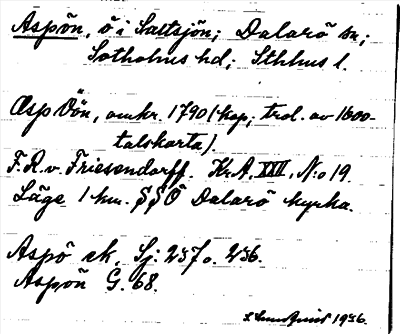 Aspön, ö i Saltsjön; Dalarö sn;
Sotholms hd; Sthlms l.
Æsp Öön, omkr. 1790 (kop, trol. av 1600-
talskarta).
F. R. v. Friesendorff. Kr. A. XXII, N:o 19.
Läge 1 km. SSÖ Dalarö kyrka.
Aspö ek. Sj: 237 o. 236.
Aspön G. 68.
1936.